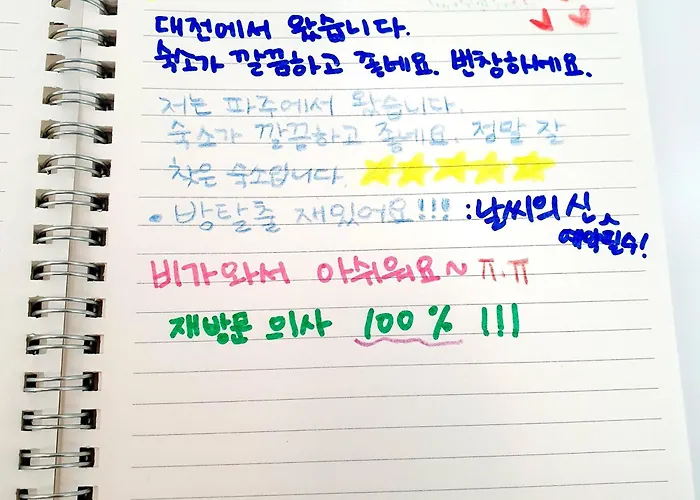 대전에서 왔습니다.
숙소가 깔끔하고 좋네요. 번창하세요.
저는 파주에서 왔습니다.
숙소가 깔끔하고 좋네요. 정말 잘
찾은 숙소입니다. ★★★★★
• 방탈출 재밌어요!!! : 날씨의 신
예약필수!
비가와서 아쉬워요~ ㅠ.ㅠ
재방문 의사 100% !!!